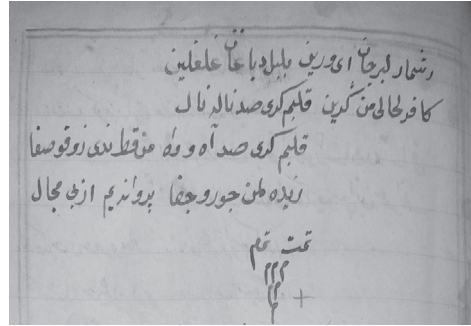 رشمار لبرجان ای ورین بلبل دباغان غلغلین
کافر لحالی من گرین قلبم کری صد ناله نال
قلبم کری صد آه و واه من قط ندی زوقو صفا
زیده لمن جور و جفا پروانه یم از بی مجال
تمت تمم
م م م